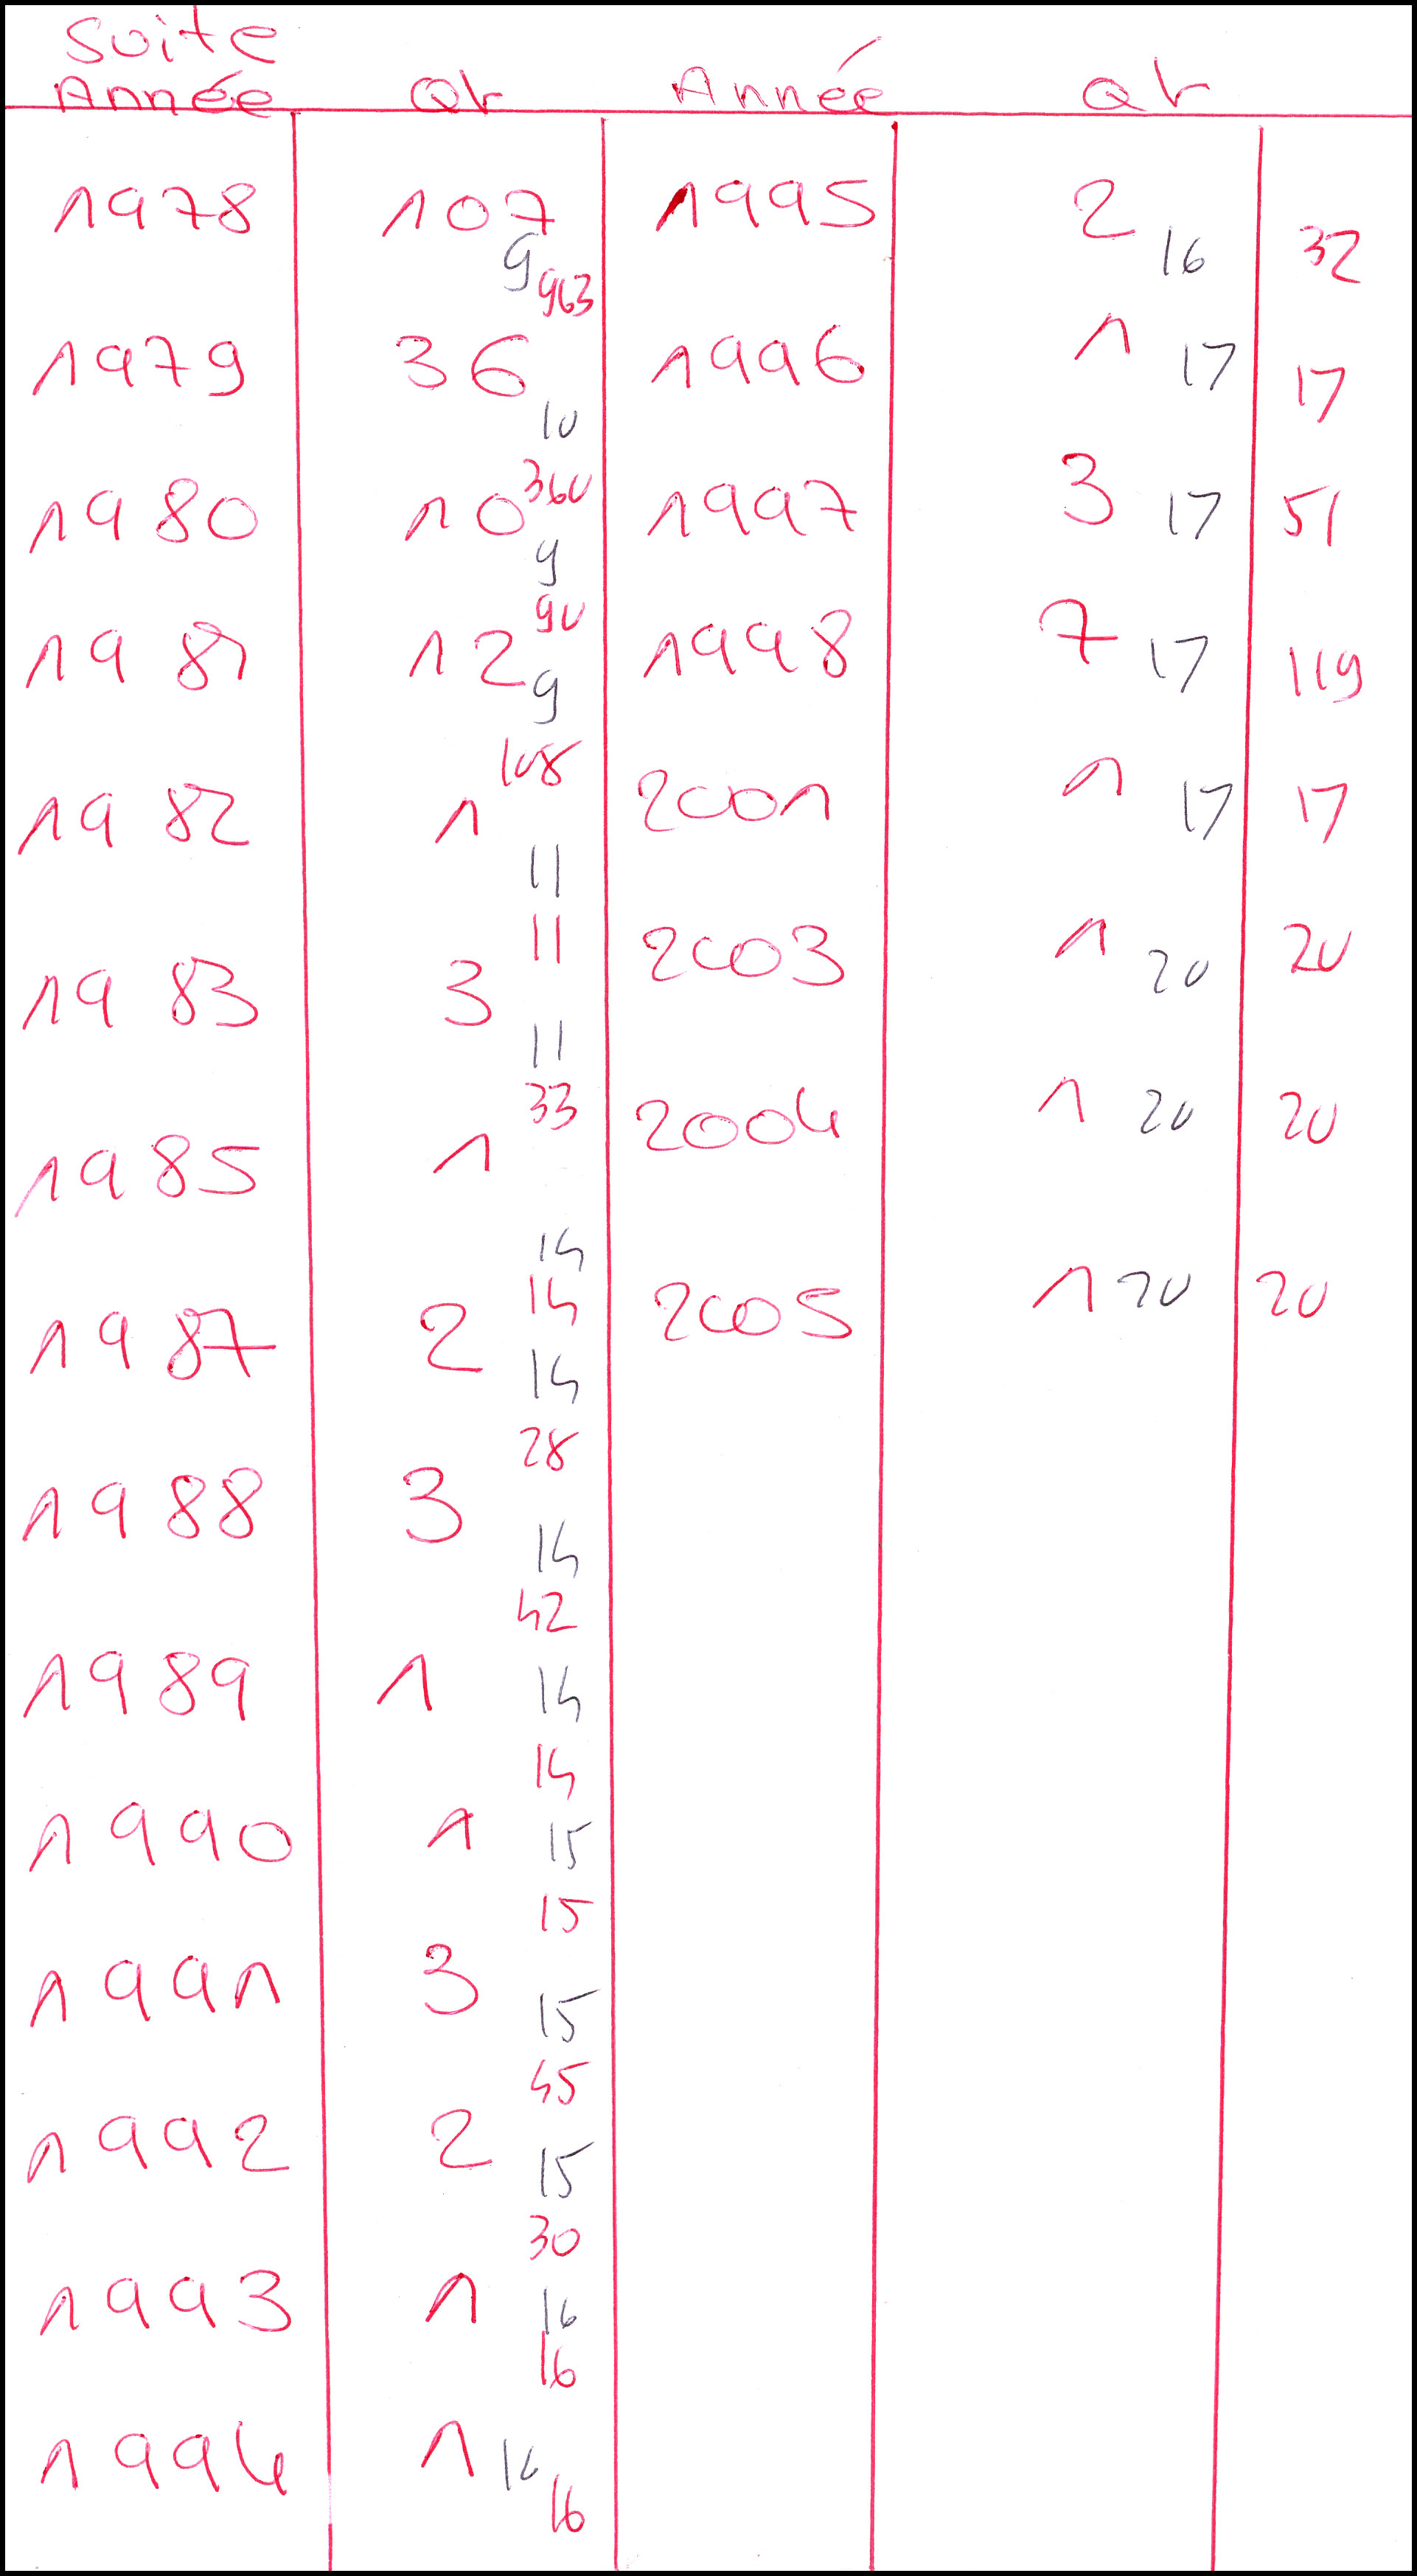 Suite
Année Qt Année Qt
1978 107 9 963
1979 36 10 360
1980 10 9 90
1981 12 9 108
1982 1 11 11
1983 3 11 33
1985 1 14 14
1987 2 14 28
1988 3 14 42
1989 1 14 14
1990 1 15 15
1991 3 15 45
1992 2 15 30
1993 1 16 16
1994 1 16 16
1995 2 16 32
1996 1 17 17
1997 3 17 51
1998 7 17 119
2001 1 17 17
2003 1 20 20
2004 1 20 20
2005 1 20 20